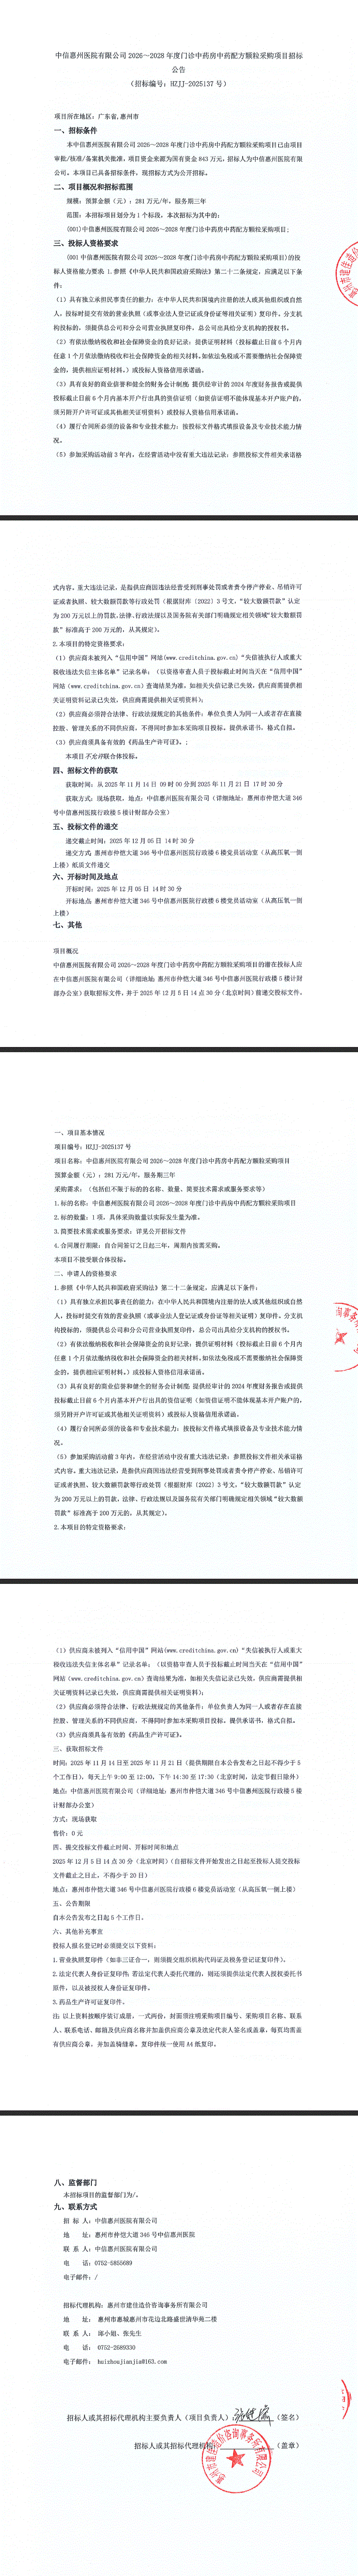 中信惠州医院有限公司 2026～2028 年度门诊中药房中药配方颗粒采购项目招标
公告
（招标编号：HZJJ-2025137 号）
项目所在地区：广东省,惠州市
一、招标条件
本中信惠州医院有限公司 2026～2028 年度门诊中药房中药配方颗粒采购项目已由项目
审批/核准/备案机关批准，项目资金来源为国有资金 843 万元，招标人为中信惠州医院有限
公司。本项目已具备招标条件，现招标方式为公开招标。
二、项目概况和招标范围
规模：预算金额（元）：281 万元/年，服务期三年
范围：本招标项目划分为 1 个标段，本次招标为其中的：
(001)中信惠州医院有限公司 2026～2028 年度门诊中药房中药配方颗粒采购项目;
三、投标人资格要求
(001 中信惠州医院有限公司 2026～2028 年度门诊中药房中药配方颗粒采购项目)的投
标人资格能力要求：1.参照《中华人民共和国政府采购法》第二十二条规定，应满足以下条
件：
（1）具有独立承担民事责任的能力：在中华人民共和国境内注册的法人或其他组织或自然
人，投标时提交有效的营业执照（或事业法人登记证或身份证等相关证明）复印件。分支机
构投标的，须提供总公司和分公司营业执照复印件，总公司出具给分支机构的授权书。
（2）有依法缴纳税收和社会保障资金的良好记录：提供证明材料（投标截止日前 6 个月内
任意 1 个月依法缴纳税收和社会保障资金的相关材料。如依法免税或不需要缴纳社会保障资
金的，提供相应证明材料。）或投标人资格信用承诺函。
（3）具有良好的商业信誉和健全的财务会计制度：提供经审计的 2024 年度财务报告或提供
投标截止日前 6 个月内基本开户行出具的资信证明（如资信证明不能体现基本开户账户的，
须另附开户许可证或其他相关证明资料）或投标人资格信用承诺函。
（4）履行合同所必须的设备和专业技术能力：按投标文件格式填报设备及专业技术能力情
况。
（5）参加采购活动前 3 年内，在经营活动中没有重大违法记录：参照投标文件相关承诺格
式内容。重大违法记录，是指供应商因违法经营受到刑事处罚或者责令停产停业、吊销许可
证或者执照、较大数额罚款等行政处罚（根据财库〔2022〕3 号文，“较大数额罚款”认定
为 200 万元以上的罚款，法律、行政法规以及国务院有关部门明确规定相关领域“较大数额罚
款”标准高于 200 万元的，从其规定）。
2.本项目的特定资格要求：
（1）供应商未被列入“信用中国”网站(www.creditchina.gov.cn)“失信被执行人或重大
税收违法失信主体名单”记录名单；（以资格审查人员于投标截止时间当天在“信用中国”
网站（www.creditchina.gov.cn）查询结果为准，如相关失信记录已失效，供应商需提供相
关证明资料记录已失效，供应商需提供相关证明资料）；
（2）供应商必须符合法律、行政法规规定的其他条件：单位负责人为同一人或者存在直接
控股、管理关系的不同供应商，不得同时参加本采购项目投标。提供承诺书，格式自拟。
（3）供应商须具备有效的《药品生产许可证》。;
本项目不允许联合体投标。
四、招标文件的获取
获取时间：从 2025 年 11 月 14 日 09 时 00 分到 2025 年 11 月 21 日 17 时 30 分
获取方式：现场获取。地点：中信惠州医院有限公司（详细地址：惠州市仲恺大道 346
号中信惠州医院行政楼 5 楼计财部办公室）
五、投标文件的递交
递交截止时间：2025 年 12 月 05 日 14 时 30 分
递交方式：惠州市仲恺大道 346 号中信惠州医院行政楼 6 楼党员活动室（从高压氧一侧
上楼）纸质文件递交
六、开标时间及地点
开标时间：2025 年 12 月 05 日 14 时 30 分
开标地点：惠州市仲恺大道 346 号中信惠州医院行政楼 6 楼党员活动室（从高压氧一侧
上楼）
七、其他
项目概况
中信惠州医院有限公司 2026～2028 年度门诊中药房中药配方颗粒采购项目的潜在投标人应
在中信惠州医院有限公司（详细地址：惠州市仲恺大道 346 号中信惠州医院行政楼 5 楼计财
部办公室）获取招标文件，并于 2025 年 12 月 5 日 14 点 30 分（北京时间）前递交投标文件。
一、项目基本情况
项目编号：HZJJ-2025137 号
项目名称：中信惠州医院有限公司 2026～2028 年度门诊中药房中药配方颗粒采购项目
预算金额（元）：281 万元/年，服务期三年
采购需求：（包括但不限于标的的名称、数量、简要技术需求或服务要求等）
1.标的名称：中信惠州医院有限公司 2026～2028 年度门诊中药房中药配方颗粒采购项目
2.标的数量：1 项，具体采购数量以实际发生量为准。
3.简要技术需求或服务要求：详见公开招标文件
4.合同履行期限：自合同签订之日起三年，周期内按需采购。
本项目不接受联合体投标。
二、申请人的资格要求
1.参照《中华人民共和国政府采购法》第二十二条规定，应满足以下条件：
（1）具有独立承担民事责任的能力：在中华人民共和国境内注册的法人或其他组织或自然
人，投标时提交有效的营业执照（或事业法人登记证或身份证等相关证明）复印件。分支机
构投标的，须提供总公司和分公司营业执照复印件，总公司出具给分支机构的授权书。
（2）有依法缴纳税收和社会保障资金的良好记录：提供证明材料（投标截止日前 6 个月内
任意 1 个月依法缴纳税收和社会保障资金的相关材料。如依法免税或不需要缴纳社会保障资
金的，提供相应证明材料。）或投标人资格信用承诺函。
（3）具有良好的商业信誉和健全的财务会计制度：提供经审计的 2024 年度财务报告或提供
投标截止日前 6 个月内基本开户行出具的资信证明（如资信证明不能体现基本开户账户的，
须另附开户许可证或其他相关证明资料）或投标人资格信用承诺函。
（4）履行合同所必须的设备和专业技术能力：按投标文件格式填报设备及专业技术能力情
况。
（5）参加采购活动前 3 年内，在经营活动中没有重大违法记录：参照投标文件相关承诺格
式内容。重大违法记录，是指供应商因违法经营受到刑事处罚或者责令停产停业、吊销许可
证或者执照、较大数额罚款等行政处罚（根据财库〔2022〕3 号文，“较大数额罚款”认定
为 200 万元以上的罚款，法律、行政法规以及国务院有关部门明确规定相关领域“较大数额
罚款”标准高于 200 万元的，从其规定）。
2.本项目的特定资格要求：
（1）供应商未被列入“信用中国”网站(www.creditchina.gov.cn)“失信被执行人或重大
税收违法失信主体名单”记录名单；（以资格审查人员于投标截止时间当天在“信用中国”
网站（www.creditchina.gov.cn）查询结果为准，如相关失信记录已失效，供应商需提供相
关证明资料记录已失效，供应商需提供相关证明资料）；
（2）供应商必须符合法律、行政法规规定的其他条件：单位负责人为同一人或者存在直接
控股、管理关系的不同供应商，不得同时参加本采购项目投标。提供承诺书，格式自拟。
（3）供应商须具备有效的《药品生产许可证》。
三、获取招标文件
时间：2025 年 11 月 14 日至 2025 年 11 月 21 日（提供期限自本公告发布之日起不得少于 5
个工作日），每天上午 9:00 至 12:00，下午 14:30 至 17:30（北京时间，法定节假日除外）
地点：中信惠州医院有限公司（详细地址：惠州市仲恺大道 346 号中信惠州医院行政楼 5 楼
计财部办公室）
方式：现场获取
售价：0 元
四、提交投标文件截止时间、开标时间和地点
2025 年 12 月 5 日 14 点 30 分（北京时间）（自招标文件开始发出之日起至投标人提交投标
文件截止之日止，不得少于 20 日）
地点：惠州市仲恺大道 346 号中信惠州医院行政楼 6 楼党员活动室（从高压氧一侧上楼）
五、公告期限
自本公告发布之日起 5 个工作日。
六、其他补充事宜
投标人报名登记时必须提交以下资料：
1.营业执照复印件（如非三证合一，则须提交组织机构代码证及税务登记证复印件）。
2.法定代表人身份证复印件；若法定代表人委托代理的，则还须提供法定代表人授权委托书
原件，以及被授权人身份证复印件。
3.药品生产许可证复印件。
注：以上资料按顺序装订成册，一式两份，封面须注明采购项目编号、采购项目名称、联系
人、联系电话、邮箱及供应商名称并加盖供应商公章及法定代表人签名或盖章，每页均需盖
有供应商公章，并加盖骑缝章。复印件统一使用 A4 纸复印。
八、监督部门
本招标项目的监督部门为/。
九、联系方式
招 标 人：中信惠州医院有限公司
地 址：惠州市仲恺大道 346 号中信惠州医院
联 系 人：中信惠州医院有限公司
电 话：0752-5855689
电子邮件：/
招标代理机构：惠州市建佳造价咨询事务所有限公司
地 址： 惠州市惠城惠州市花边北路盛世清华苑二楼
联 系 人： 邱小姐、张先生
电 话： 0752-2689330
电子邮件： huizhoujianjia@163.com
招标人或其招标代理机构主要负责人（项目负责人）：（签名）
招标人或其招标代理机构：（盖章）
惠州市建佳造价咨询事务所有限公司